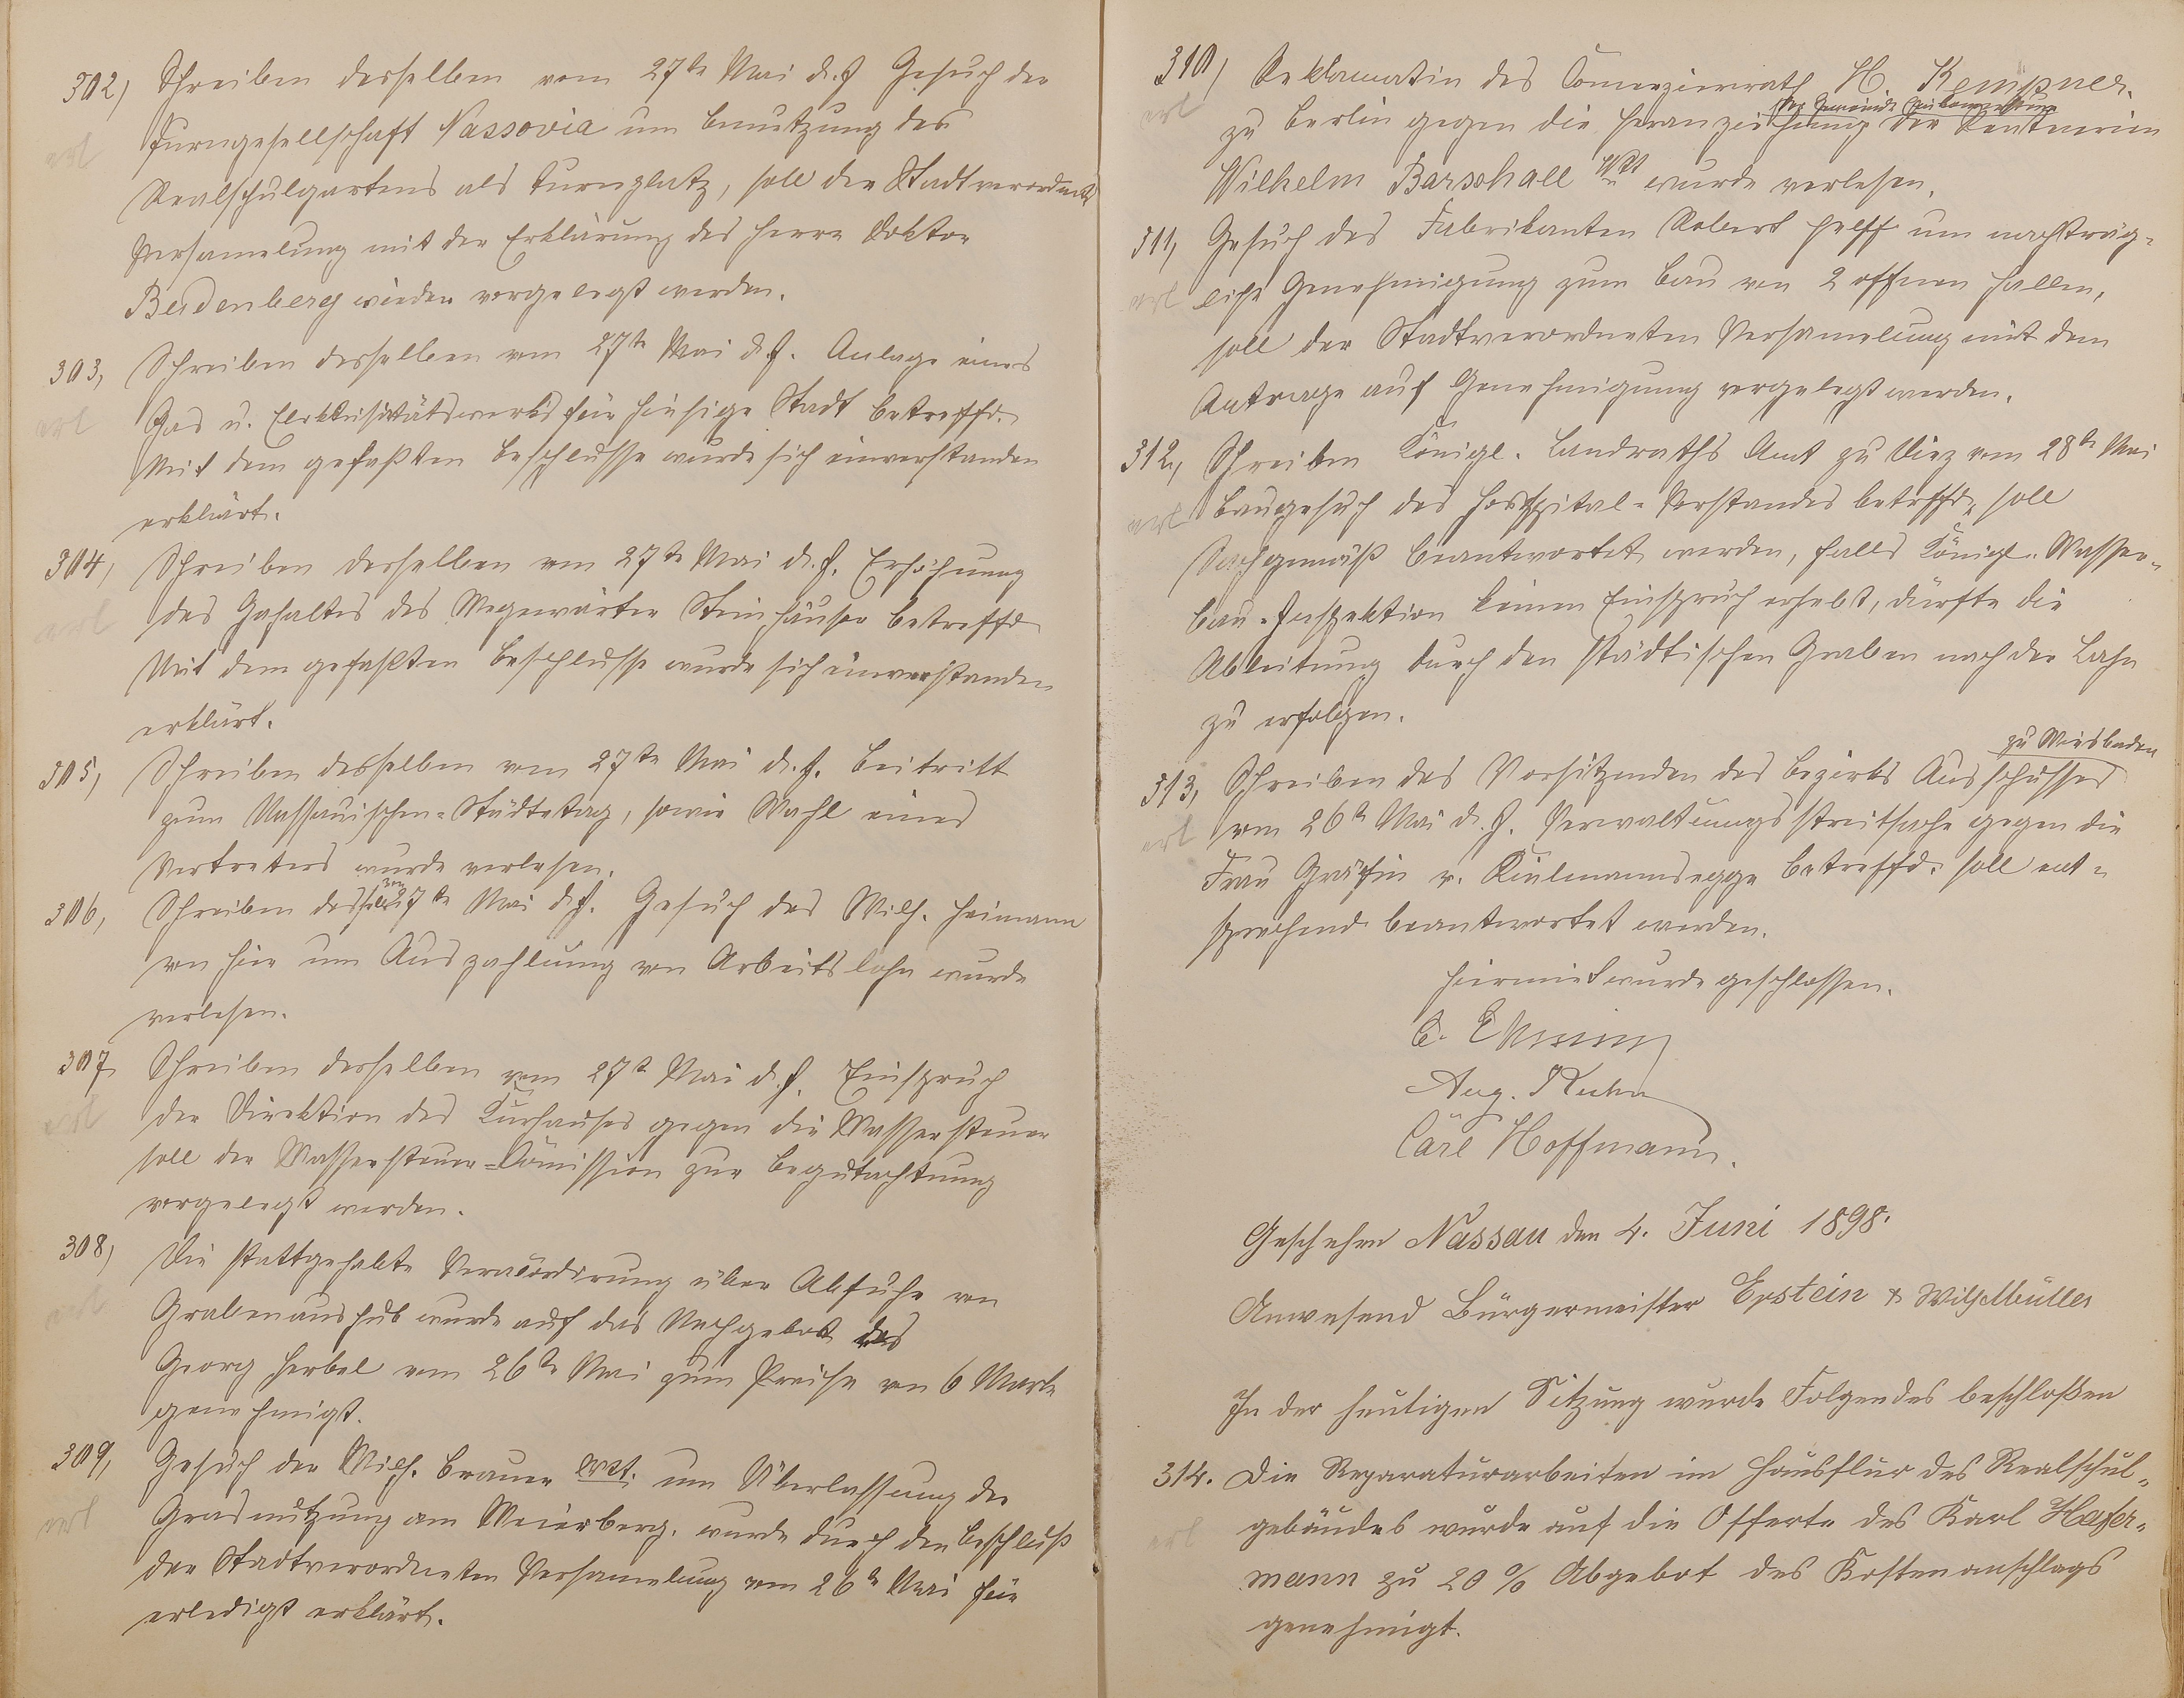 302) Schreiben desselben vom 27te Mai d. J. Gesuch der
erl
Turngesellschaft Nassovia um Benutzung des
Realschulgartens als Turnplatz, soll der Stadtverordneten
Versamelung mit der Erklärung des Herrn Doktor
Budenberg wieder vorgelegt werden.
303, Schreiben desselben vom 27te Mai d. J. Anlage eines
erl
Gas u. Elektrisitätswerks für hiesige Stadt betreffd.
Mit dem gefaßten Beschlusse wurde sich einverstanden
erklärt.
304, Schreiben desselben vom 27te Mai d. J. Erhöhung
erl
des Gehaltes des Wegewärter Steinhäuser betreffd
Mit dem gefaßten Beschlusse wurde sich einverstanden
erklärt.
305, Schreiben desselben vom 27te Mai d. J. Beitritt
zum Nassauischen-Städtetag, sowie Wahl eines
Vertreters wurde verlesen.
306, Schreiben desselben 27te Mai d. J. Gesuch des Wilh. Heimann
von hier um Auszahlung von Arbeitslohn wurde
verlesen.
307 Schreiben desselben vom 27te Mai d. J. Einspruch
erl
der Direktion des Kurhauses gegen die Wassersteuer
soll der Wassersteuer-Comission zur Begutachtung
vorgelegt werden.
308) Die stattgehabte Veraccordirung über Abfuhr von
erl
Grabenaushub wurde auf das Nachgebot des
Georg Herbel vom 26te Mai zum Preise von 6 Mark
genehmigt.
309, Gesuch der Wilh. Brauer Wwt. um Überlassung der
erl
Grasnutzung am Weierberg. wurde durch den Beschluß
der Stadtverordneten Versamelung vom 26te Mai für
erledigt erklärt.
310) Reklamatin des Comerzienrath H. Kempner.
erl
zur Gemeinde Einkommensteuer
zu Berlin gegen die Heranziehung der Rentnerin
Wilhelm Barschall Wwt wurde verlesen.
311, Gesuch des Fabrikanten Robert Helff um nachträg-
erl
liche Genehmigung zum Bau von 2 offenen Hallen,
soll der Stadtverordneten Versamelung mit dem
Antrage auf Genehmigung vorgelegt werden.
312, Schreiben Königl. Landraths Amt zu Diez vom 28te Mai
erl
Baugesuch des Hospital-Vorstandes betrffd. soll
Sachgemäß beantwortet werden, falls Königl. Wasser-
bau-Inspektion keinen Einspruch erhebt, dürfte die
Ableitung durch den städtischen Graben nach der Lahn
zu erfolgen.
zu Wiesbaden
313, Schreiben des Vorsitzenden des Bezirks Ausschusses
erl
vom 26te Mai d. J. Verwaltungsstreitsache gegen die
Frau Gräfin v. Kielmannsegge betreffd. soll ent-
sprechend beantwortet werden.
Hiermit wurde geschlossen.
Aug. Kuhn
Carl Hoffmann.
Geschehen Nassau den 4. Juni 1898.
Anwesend Bürgermeister Epstein & Wilh Müller
In der heutigen Sitzung wurde Folgendes beschloßen
314. Die Reparaturarbeiten im Hausflur des Realschul-
erl
gebäudes wurde auf die Offerte des Karl Hafer-
mann zu 20 % Abgebot des Kostenanschlags
genehmigt.